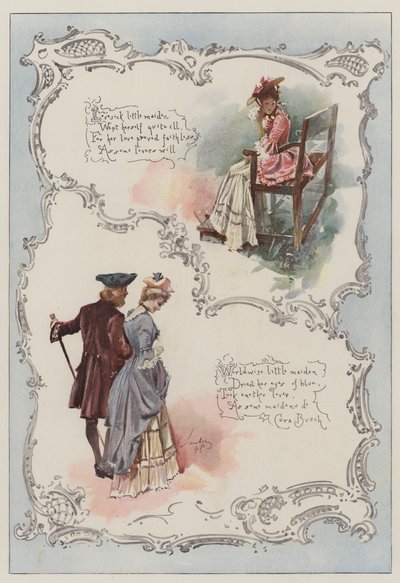 Lovesick little maiden
Wept herself quite ill,
For her love proved faithless,
As some lovers will.
Worldwise little maiden
Dried her eyes of blue,
Took another lover,
As some maidens do
Cora Busch